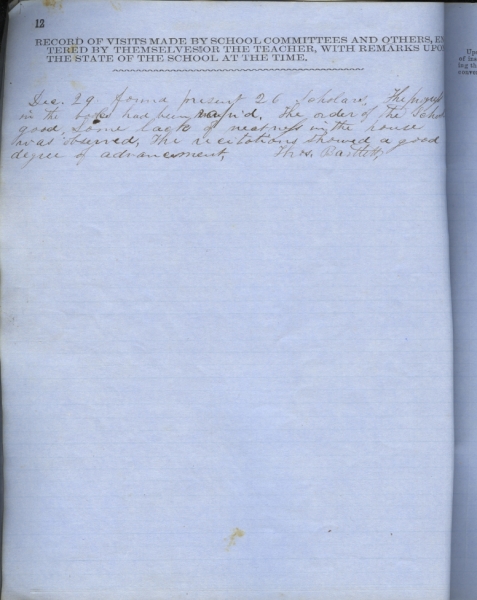 12
RECORD OF VISITS MADE BY SCHOOL COMMITTEES AND OTHERS, EN
TERED BY THEMSELVES OR THE TEACHER, WITH REMARKS UPO
THE STATE OF THE SCHOOL AT THE TIME.
Dec. 29 found present 26 Scholars, The
in the had been The order of the Schoo
good, Some lack of neatness in the house
was observed, The recitations showed a good
degree of advancement, Thos. Bartlett,
Upo
of
ing th
conve